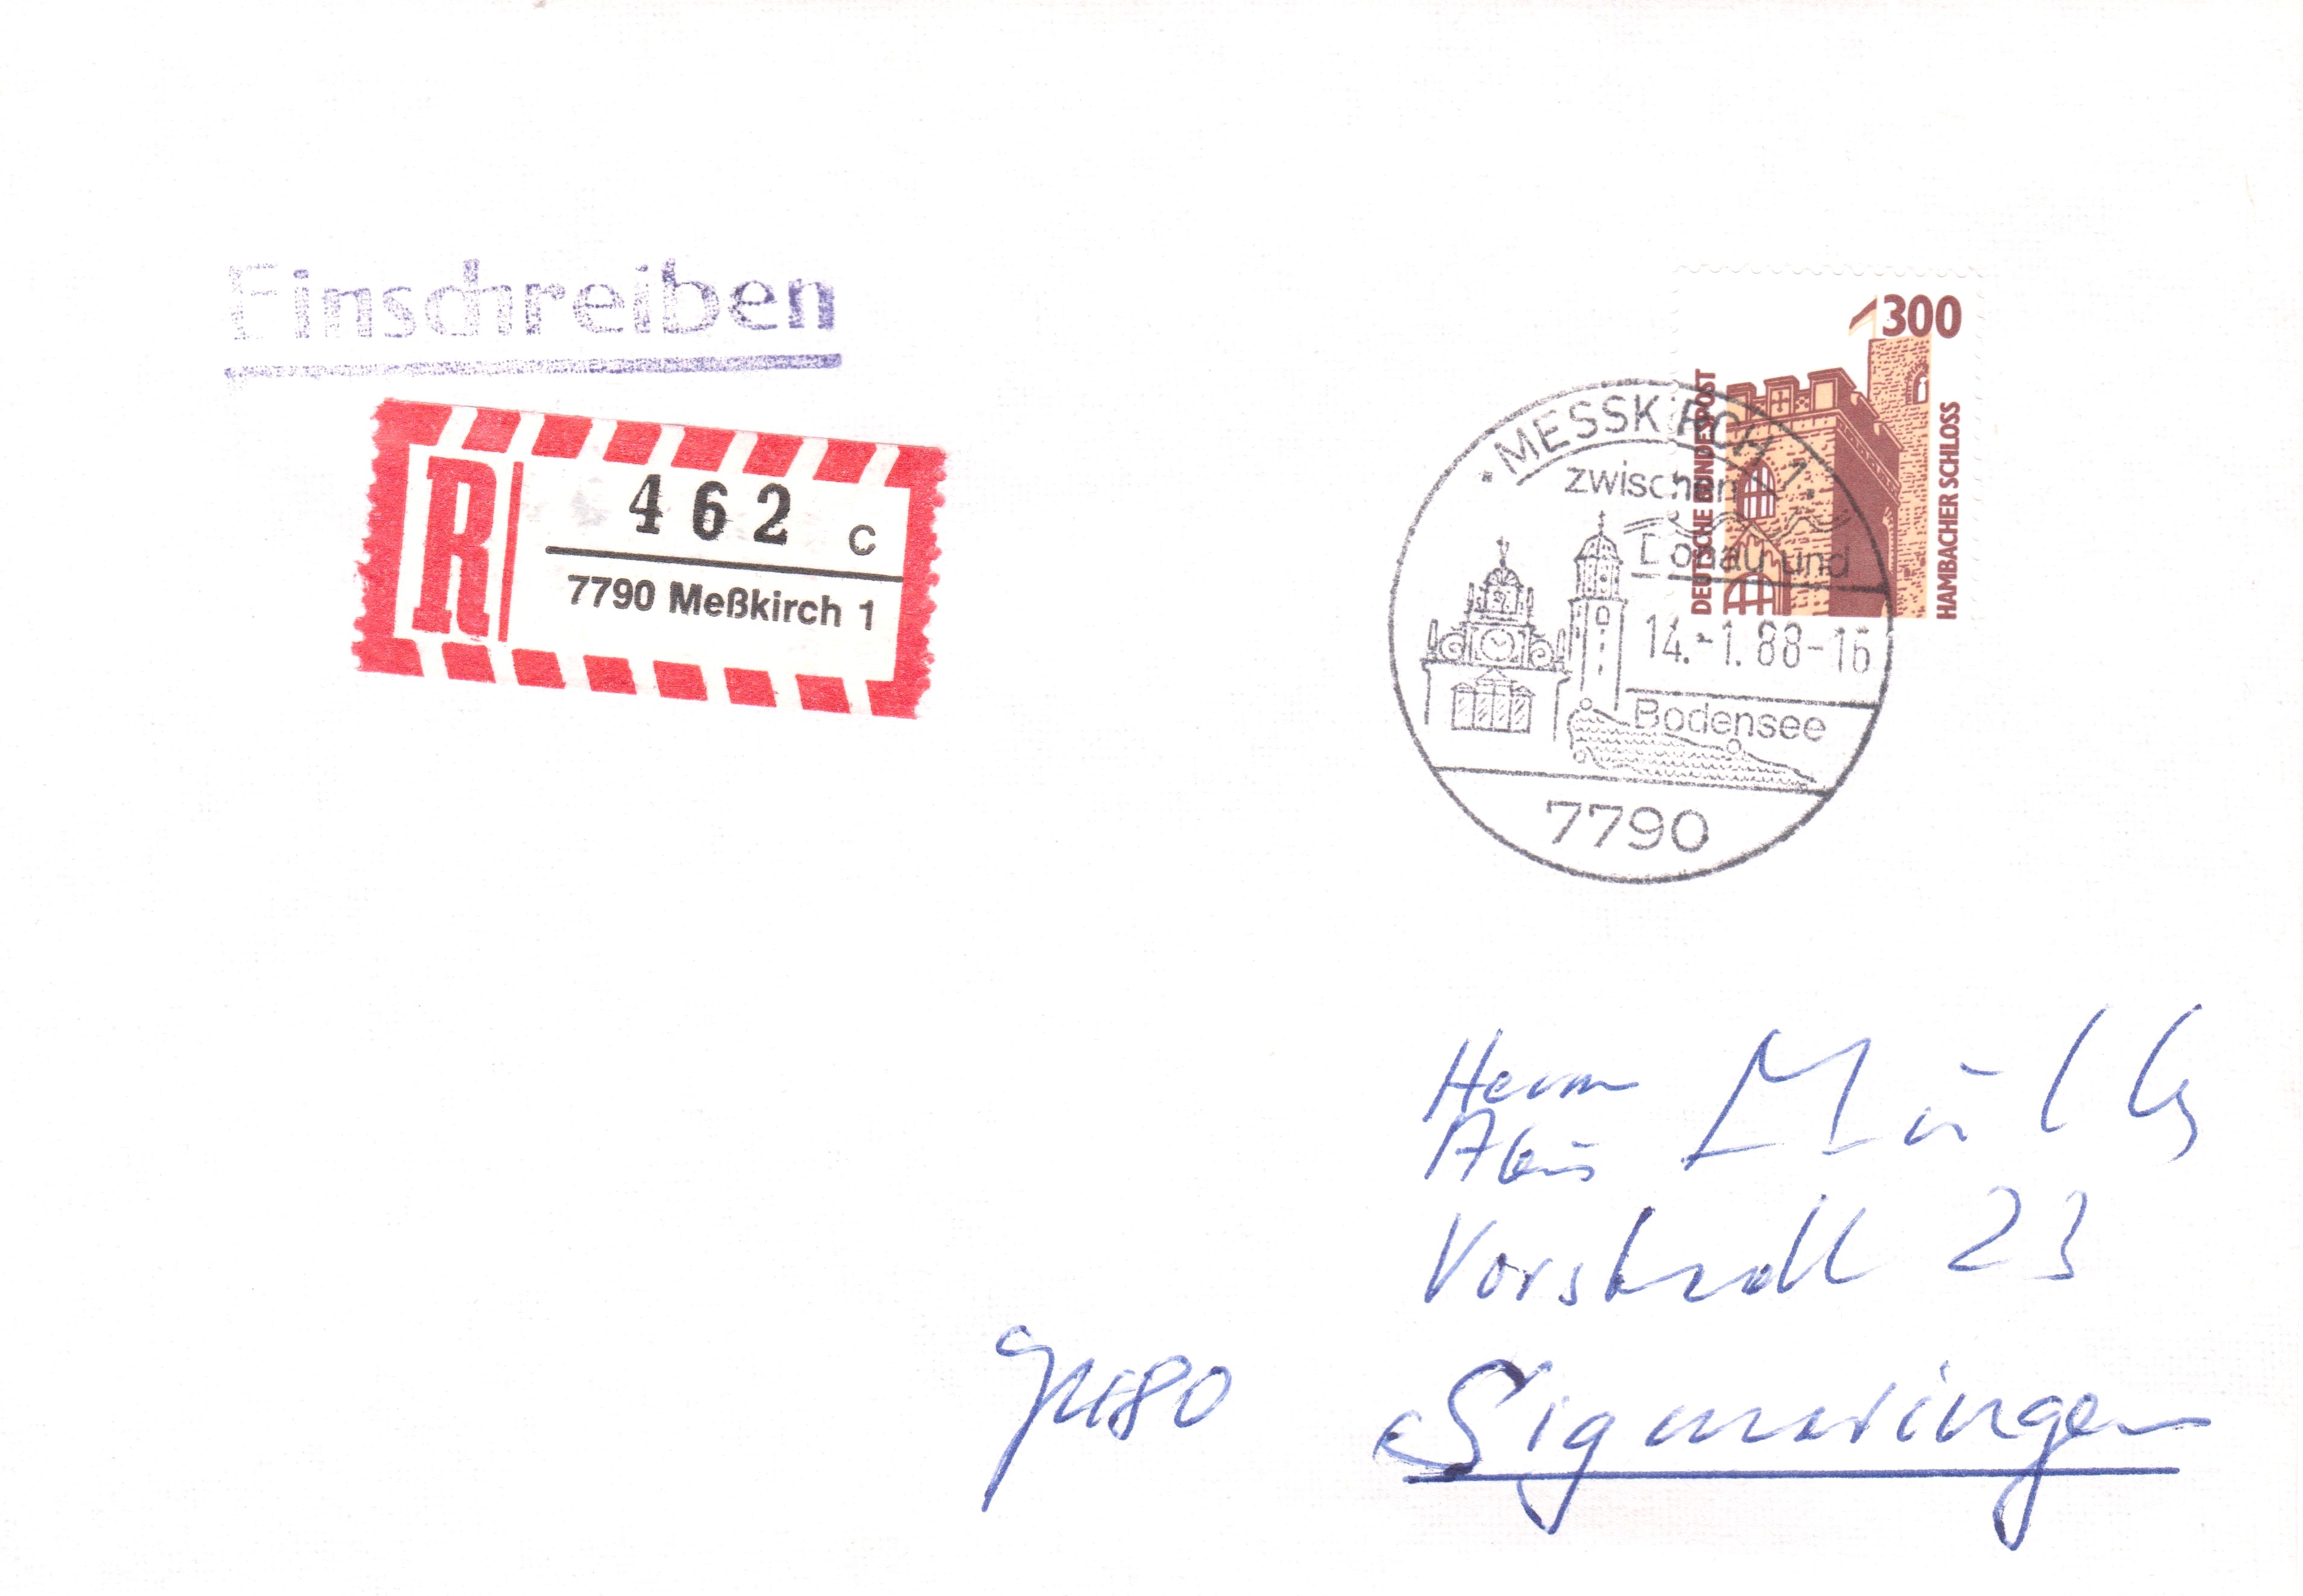 Einschreiben
R
462 c
7790 Meßkirch 1
300
DEUTSCHE BUNDESPOST
HAMBACHER SCHLOSS
MESSKIRCH 1
zwischen
Donau und
14.-1.88-16
Bodensee
7790
Herrn
Vorstadt 23
7480 Sigmaringen